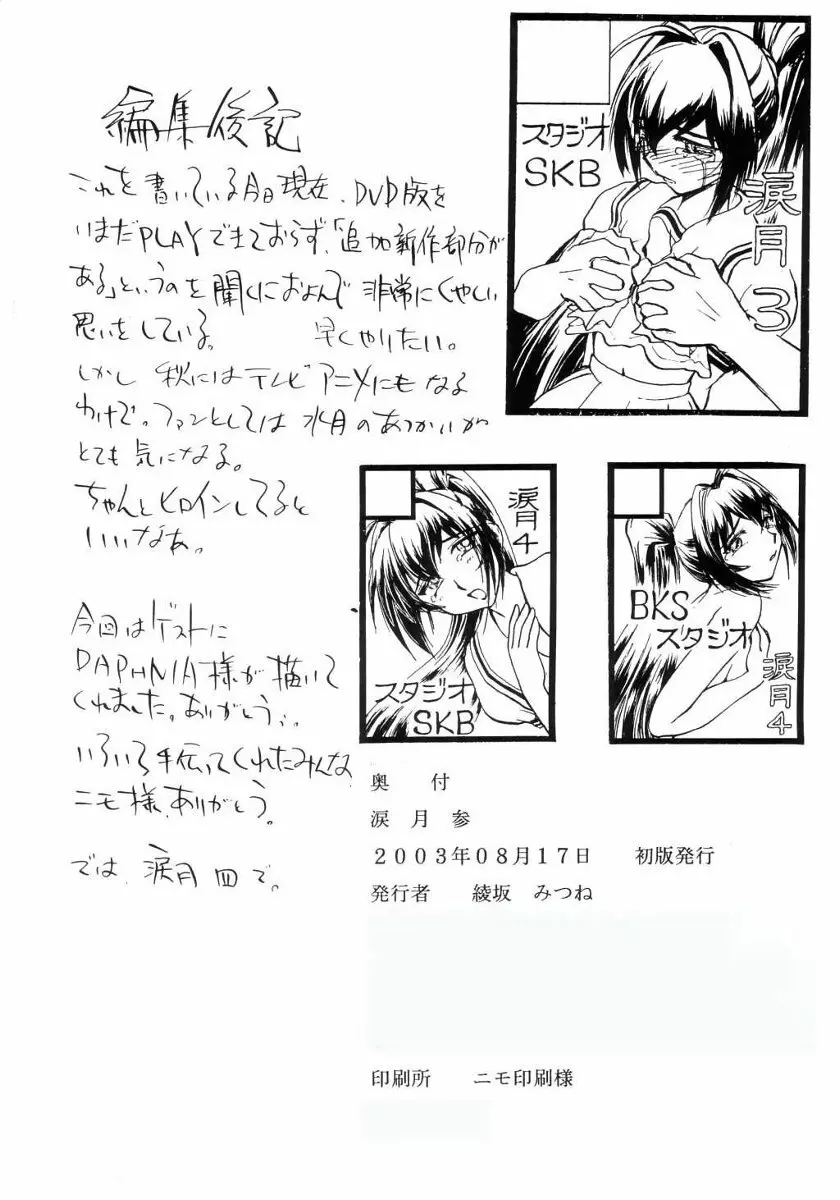 編集後記
これを書いている今日現在、DVD版を
いまだPLAYできておらず、「追加新作部分が
ある」というのを聞くにおよんで非常にくやしい
思いをしている。　早くやりたい。
しかし 秋にはテレビアニメにもなる
わけで。ファンとしては水月のあつかいが
とても気になる。
ちゃんとヒロインしてると
いいなあ。
今回はゲストに
DAPHNIA様が描いて
くれました。ありがとう。
いろいろ手伝ってくれたみんな
ニモ様、ありがとう。
では、涙月 四 で。
スタジオ
SKB
涙月3
涙月4
スタジオ
SKB
BKS
スタジオ
涙月4
奥　付
涙　月　参
２００３年０８月１７日　初版発行
発行者　綾坂　みつね
印刷所　ニモ印刷様